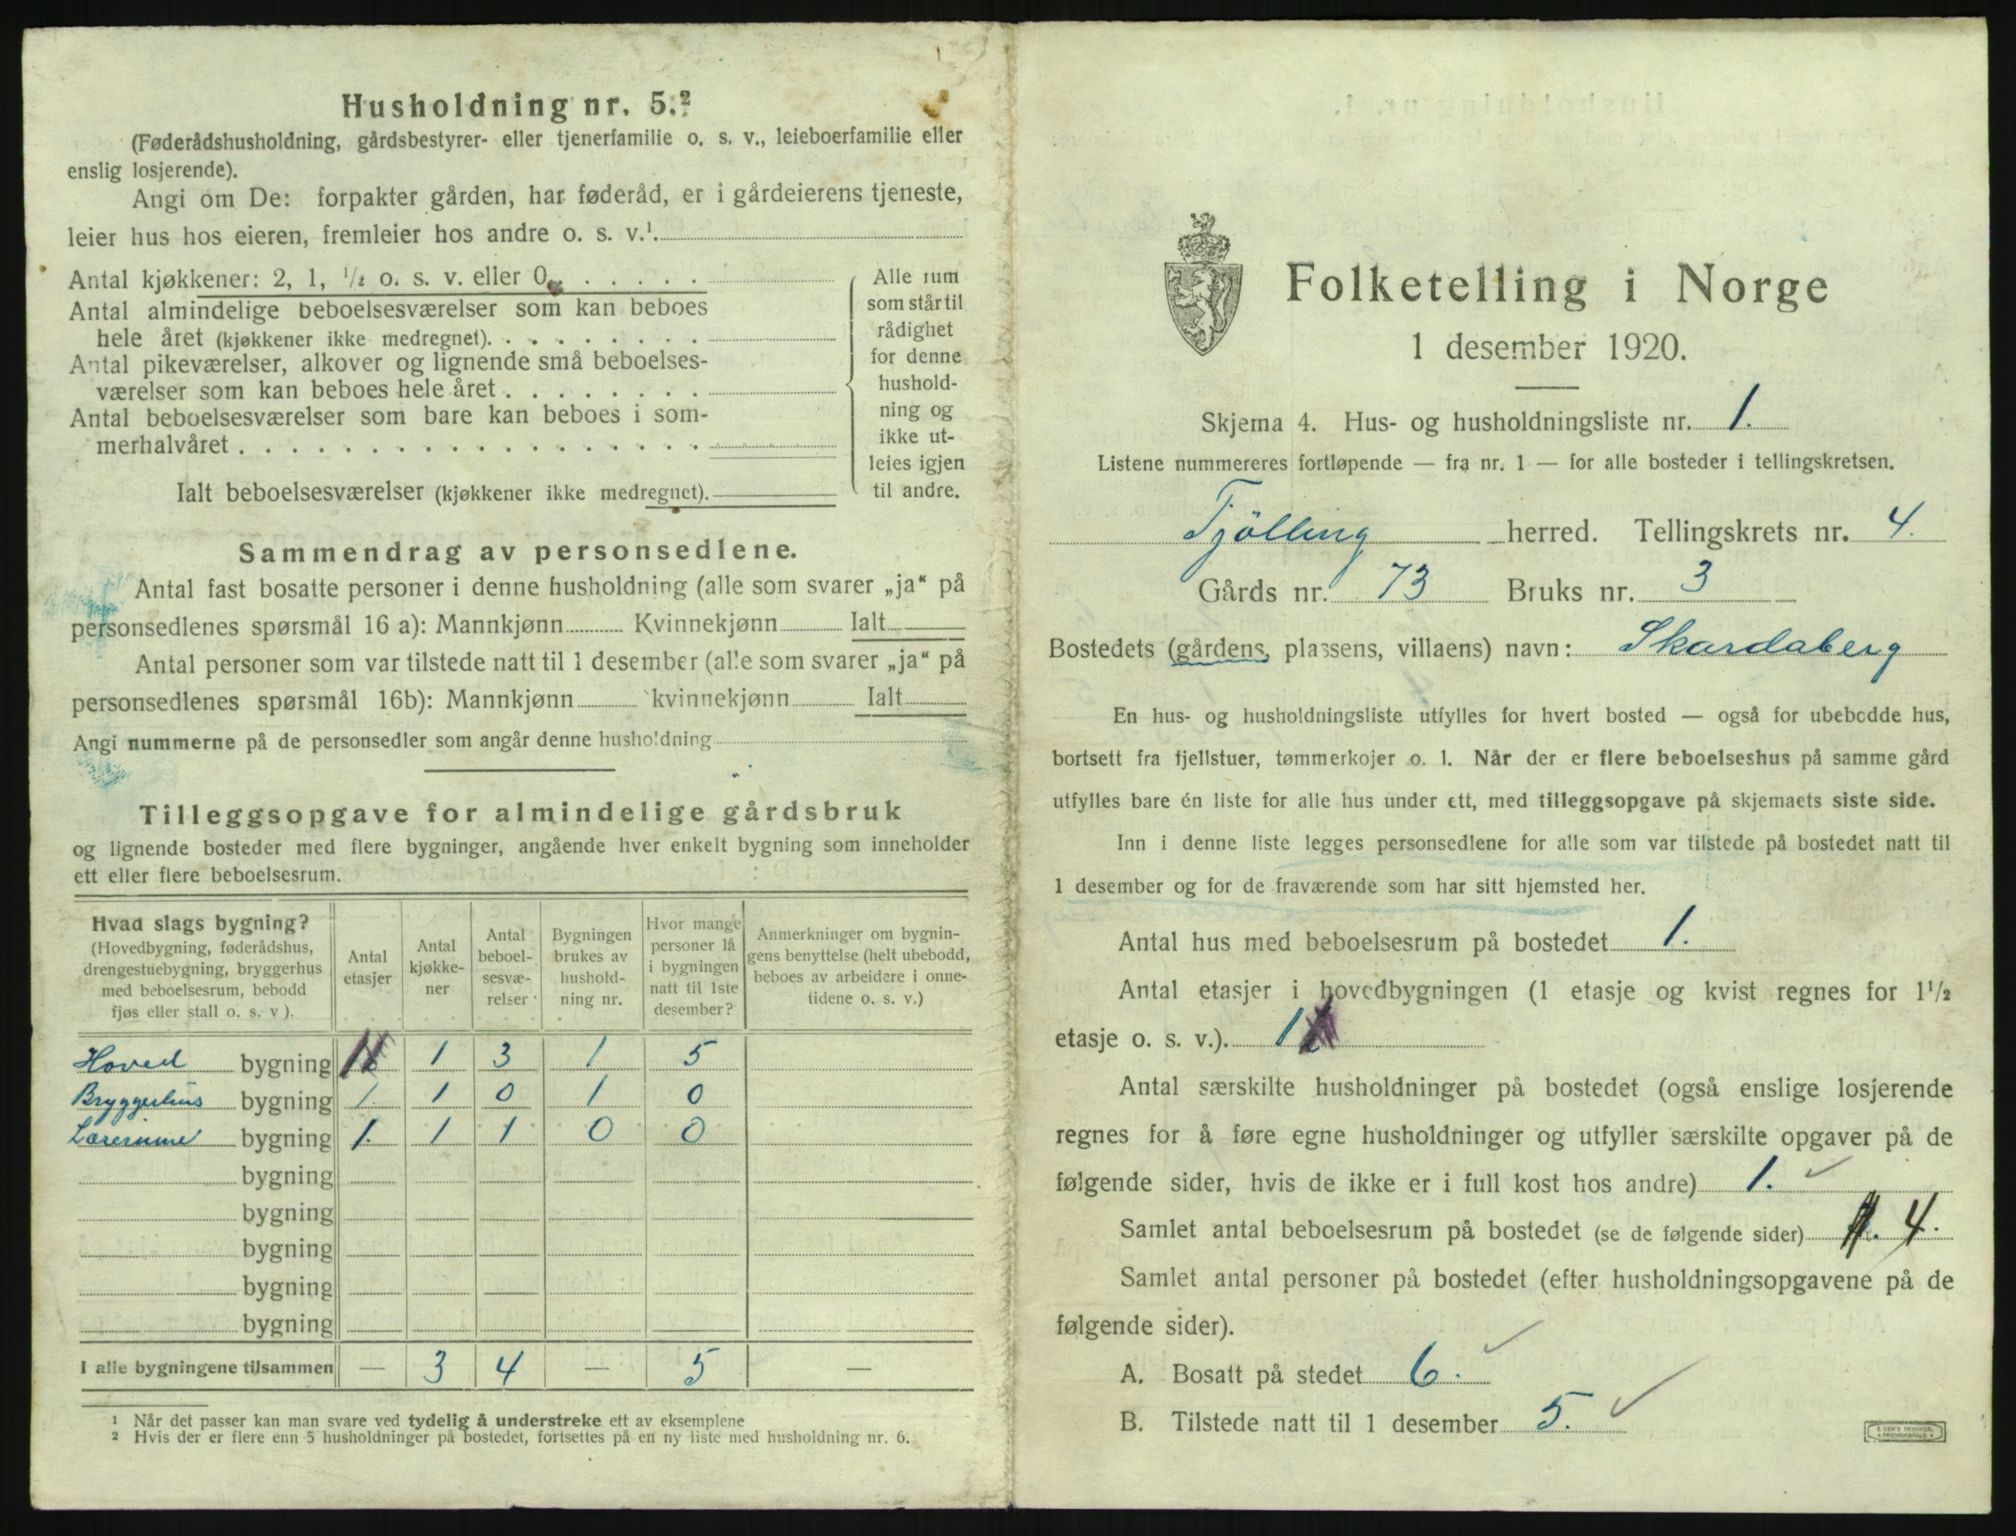 Husholdning nr. 5.²
(Føderådshusholdning, gårdsbestyrer- eller tjenerfamilie o. s. v., leieboerfamilie eller
enslig losjerende).
Angi om De: forpakter gården, har føderåd, er i gårdeierens tjeneste,
leier hus hos eieren, fremleier hos andre o. s. v.¹.
Antal kjøkkener: 2, 1, ½ o. s. v. eller 0
Antal almindelige beboelsesværelser som kan beboes
hele året (kjøkkener ikke medregnet).
Antal pikeværelser, alkover og lignende små beboelses-
værelser som kan beboes hele året
Antal beboelsesværelser som bare kan beboes i som-
merhalvåret
Ialt beboelsesværelser (kjøkkener ikke medregnet).
Alle rum
som står til
rådighet
for denne
hushold-
ning og
ikke ut-
leies igjen
til andre.
Sammendrag av personsedlene.
Antal fast bosatte personer i denne husholdning (alle som svarer „ja“ på
personsedlenes spørsmål 16 a): Mannkjønn Kvinnekjønn Ialt
Antal personer som var tilstede natt til 1 desember (alle som svarer „ja“ på
personsedlenes spørsmål 16b): Mannkjønn kvinnekjønn Ialt
Angi nummerne på de personsedler som angår denne husholdning
Tilleggsopgave for almindelige gårdsbruk
og lignende bosteder med flere bygninger, angående hver enkelt bygning som inneholder
ett eller flere beboelsesrum.
Hvad slags bygning?
(Hovedbygning, føderådshus,
drengestuebygning, bryggerhus
med beboelsesrum, bebodd
fjøs eller stall o. s. v).
Antal
etasjer
Antal
kjøkke-
ner
Antal
beboel-
sesvæ-
relser
Bygningen
brukes av
hushold-
ning nr.
Hvor mange
personer lå
i bygningen
natt til 1ste
desember?
Anmerkninger om bygnin-
gens benyttelse (helt ubebodd,
beboes av arbeidere i onne-
tidene o. s. v.)
Hoved bygning 1 1 3 1 5
Bryggerhus bygning 1. 1 0 1 0
bygning 1. 1 1 0 0
bygning
bygning
bygning
bygning
bygning
I alle bygningene tilsammen — 3 4 — 5 —
¹ Når det passer kan man svare ved tydelig å understreke ett av eksemplene
² Hvis der er flere enn 5 husholdninger på bostedet, fortsettes på en ny liste med husholdning nr. 6.
Folketelling i Norge
1 desember 1920.
Skjema 4. Hus- og husholdningsliste nr. 1.
Listene nummereres fortløpende — fra nr. 1 — for alle bosteder i tellingskretsen.
Tjölling herred. Tellingskrets nr. 4.
Gårds nr. 73 Bruks nr. 3
Bostedets (gårdens, plassens, villaens) navn: Skardaberg
En hus- og husholdningsliste utfylles for hvert bosted — også for ubebodde hus,
bortsett fra fjellstuer, tømmerkojer o. l. Når der er flere beboelseshus på samme gård
utfylles bare én liste for alle hus under ett, med tilleggsopgave på skjemaets siste side.
Inn i denne liste legges personsedlene for alle som var tilstede på bostedet natt til
1 desember og for de fraværende som har sitt hjemsted her.
Antal hus med beboelsesrum på bostedet 1.
Antal etasjer i hovedbygningen (1 etasje og kvist regnes for 1½
etasje o. s. v.). 1
Antal særskilte husholdninger på bostedet (også enslige losjerende
regnes for å føre egne husholdninger og utfyller særskilte opgaver på de
følgende sider, hvis de ikke er i full kost hos andre) 1.
Samlet antal beboelsesrum på bostedet (se de følgende sider) 4.
Samlet antal personer på bostedet (efter husholdningsopgavene på de
følgende sider).
A. Bosatt på stedet 6.
B. Tilstede natt til 1 desember 5.